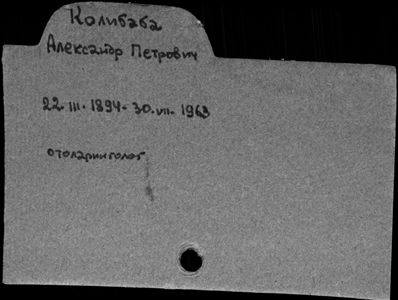 Колибаба
Александр Петрович
22.III.1894-30.VII.1963
отоларинголог